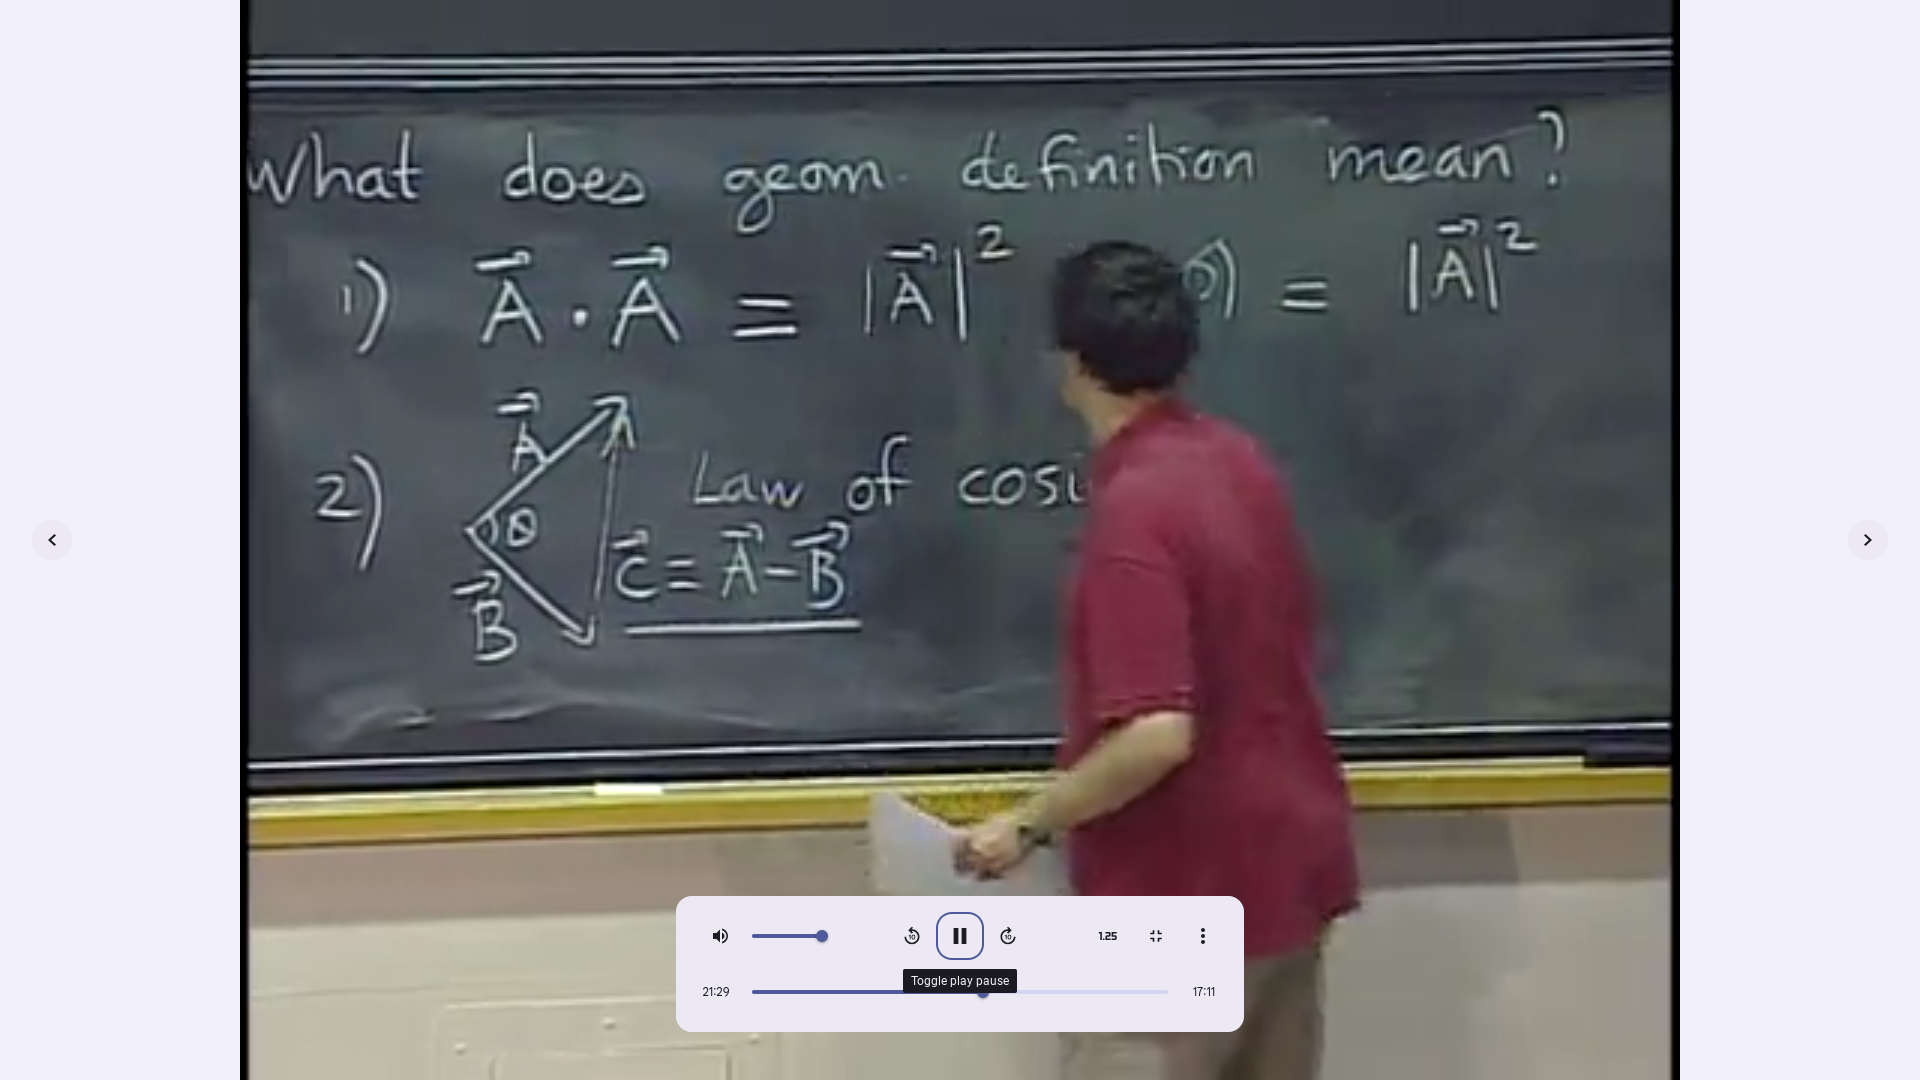 What does geom. definition mean?
1) A · A = |A|² 0) = |A|²
2) A Law of cosi
θ
C = A - B
B
1.25
Toggle play pause
21:29 17:11